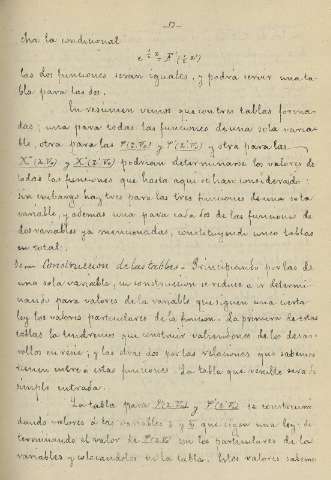 -57-
cha la condicional
las dos funciones serán iguales, y podrá servir una ta-
bla para las dos.
En resumen vemos que con tres tablas forma-
das; una para todas las funciones de una sola varia-
ble, otra para las y otra para las
y podrían determinarse los valores de
todas las funciones que hasta aquí se han considerado:
sin embargo hay tres para las tres funciones de una sola
variable, y además una para cada dos de las funciones de
dos variables ya mencionadas, constituyendo cinco tablas
en total.
Construccion de las tablas.- Principiando por las de
una sola variable, su construccion se reduce a ir determi-
nando para valores de la variable que siguen una cierta
ley los valores particulares de la funcion. La primera de estas
tablas la tendremos que construir valiéndonos de los desar-
rollos en serie; y las otras dos por las relaciones que sabemos
tienen entre sí estas funciones. La tabla que resulte será de
simple entrada.
La tabla para y se construirá
dando valores á las variables z y que sigan una ley y de-
terminando el valor de con los particulares de la
variable y colocándolos en la tabla. Estos valores sabemos